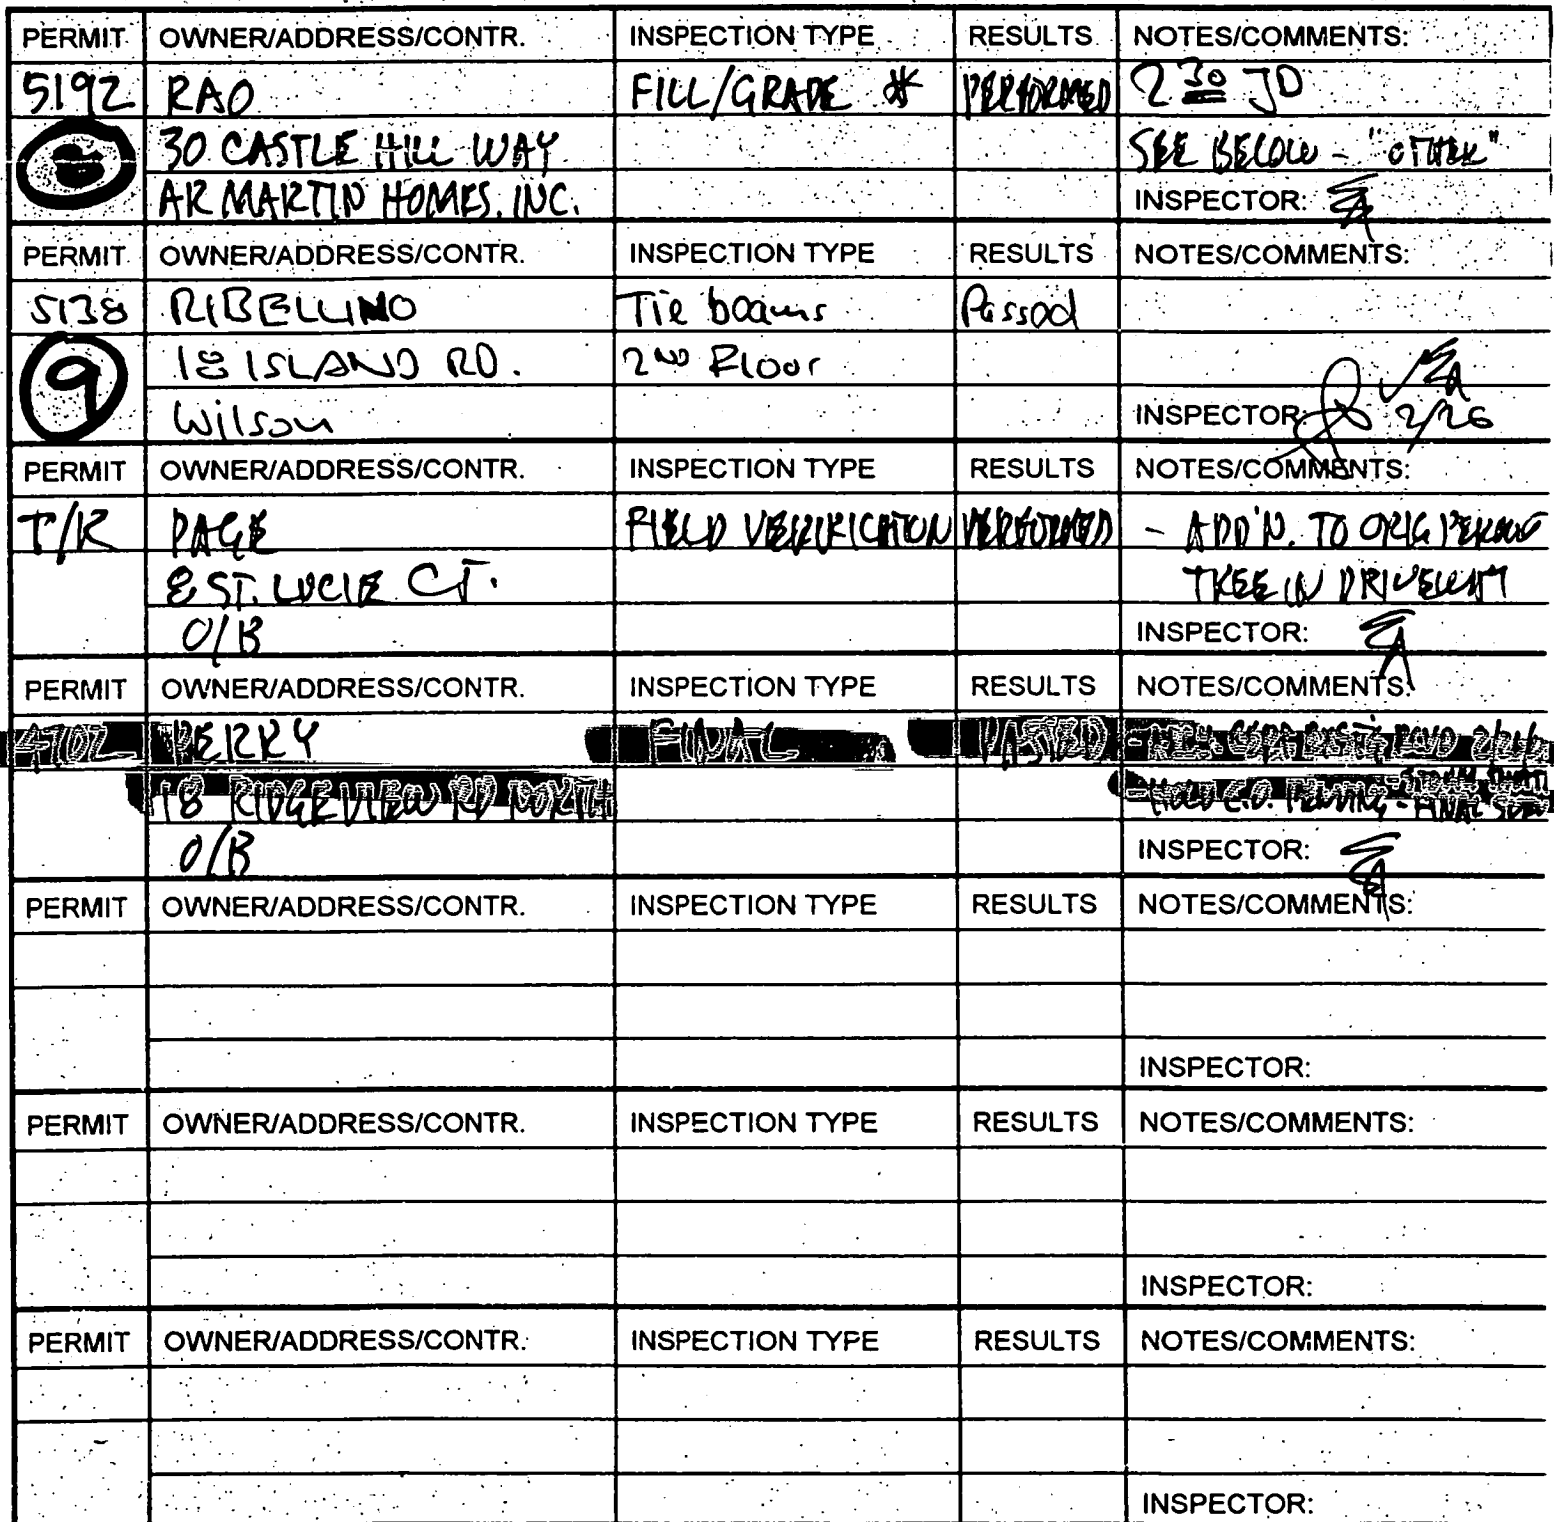 PERMIT OWNER/ADDRESS/CONTR. INSPECTION TYPE RESULTS NOTES/COMMENTS:
5192 RAO FILL/GRADE * PERFORMED 2 30 JD
30 CASTLE HILL WAY SEE BELOW - "OTHER"
AR MARTIN HOMES, INC. INSPECTOR:
PERMIT OWNER/ADDRESS/CONTR. INSPECTION TYPE RESULTS NOTES/COMMENTS:
5138 RIBELLINO Tie beams Passed
9 18 ISLAND RD. 2ND Floor
Wilson INSPECTOR: 2/26
PERMIT OWNER/ADDRESS/CONTR. INSPECTION TYPE RESULTS NOTES/COMMENTS:
T/R PAGE FIELD VERIFICATION PERFORMED - ADD'N. TO ORIG
8 ST. LUCIE CT. TREE IN DRIVEWAY
O/B INSPECTOR:
PERMIT OWNER/ADDRESS/CONTR. INSPECTION TYPE RESULTS NOTES/COMMENTS:
4702 PERRY FINAL PASSED
18 RIDGEVIEW RD NORTH HOLD C.O. PENDING - FINAL
O/B INSPECTOR:
PERMIT OWNER/ADDRESS/CONTR. INSPECTION TYPE RESULTS NOTES/COMMENTS:
INSPECTOR:
PERMIT OWNER/ADDRESS/CONTR. INSPECTION TYPE RESULTS NOTES/COMMENTS:
INSPECTOR:
PERMIT OWNER/ADDRESS/CONTR. INSPECTION TYPE RESULTS NOTES/COMMENTS:
INSPECTOR: